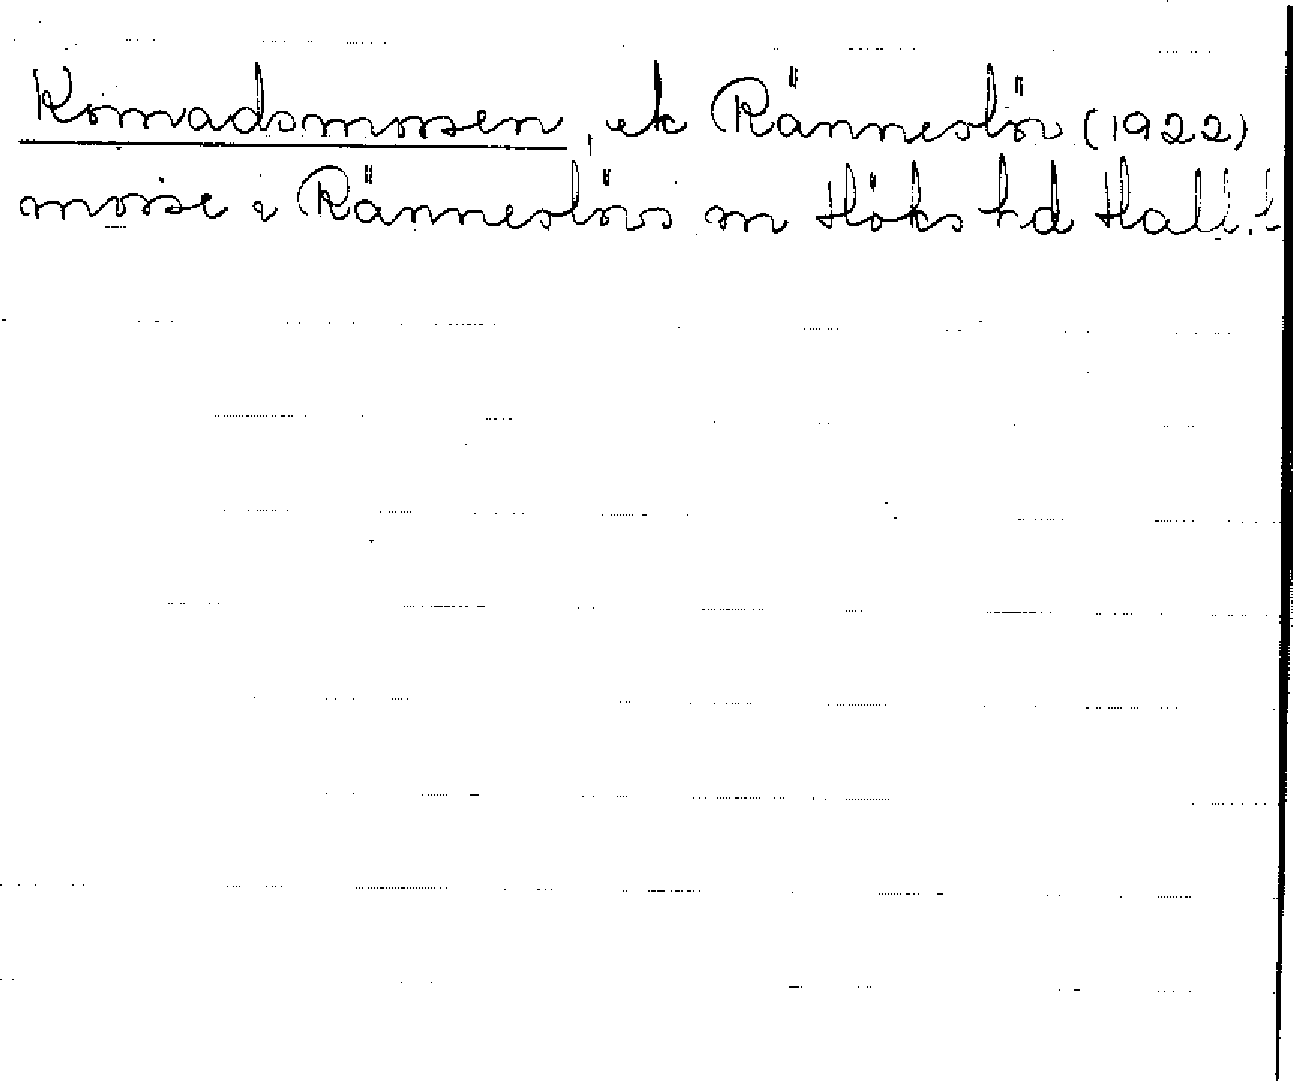 Komadsmossen, ek Ränneslöv (1922)
mosse i Ränneslövs sn Höks hd Hall. l